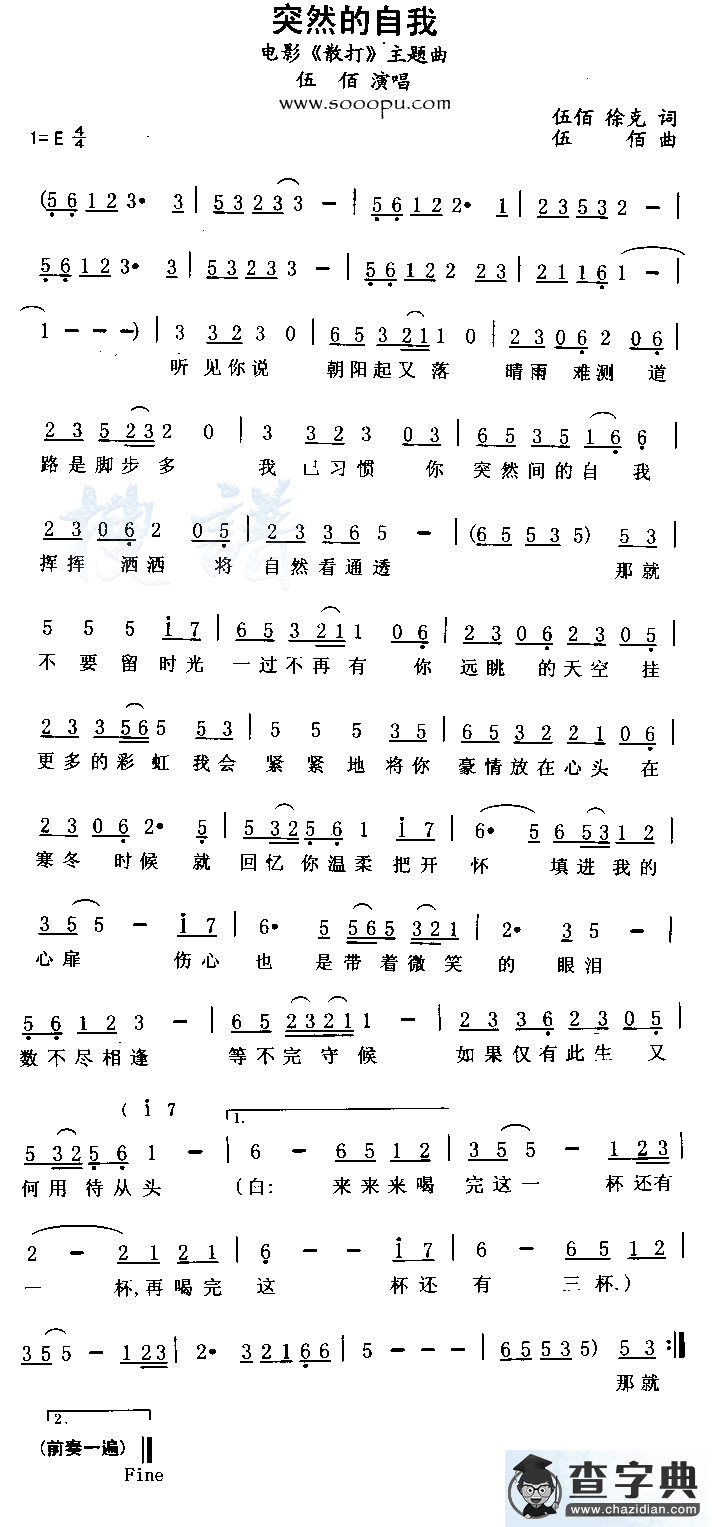 突然的自我
电影《散打》主题曲
伍 佰 演唱
www.sooopu.com
伍佰 徐克 词
1=E 4/4
伍 佰 曲
(5 6 1 2 3• 3 | 5 3 2 3 3 － | 5 6 1 2 2• 1 | 2 3 5 3 2 － |
5 6 1 2 3• 3 | 5 3 2 3 3 － | 5 6 1 2 2 2 3 | 2 1 1 6 1 － |
1 － － －) | 3 3 2 3 0 | 6 5 3 2 1 1 0 | 2 3 0 6 2 0 6 |
听 见你说 朝阳起又落 晴雨 难测 道
2 3 5 2 3 2 0 | 3 3 2 3 0 3 | 6 5 3 5 1 6 6 |
路是脚步多 我 已习惯 你 突然间的自 我
2 3 0 6 2 0 5 | 2 3 3 6 5 － | (6 5 5 3 5) 5 3 |
挥挥 洒洒 将 自然看通透 那就
5 5 5 i 7 | 6 5 3 2 1 1 0 6 | 2 3 0 6 2 3 0 5 |
不 要 留 时光 一过不再有 你 远眺 的天空 挂
2 3 3 5 6 5 5 3 | 5 5 5 3 5 | 6 5 3 2 2 1 0 6 |
更多的彩虹 我会 紧 紧 地 将你 豪情放在心头 在
2 3 0 6 2• 5 | 5 3 2 5 6 1 i 7 | 6• 5 6 5 3 1 2 |
寒冬 时候 就 回忆你温柔 把开 怀 填进我的
3 5 5 － i 7 | 6• 5 5 6 5 3 2 1 | 2• 3 5 － |
心扉 伤心 也 是带着微笑 的 眼泪
5 6 1 2 3 － | 6 5 2 3 2 1 1 － | 2 3 3 6 2 3 0 5 |
数不尽相逢 等不完守候 如果仅有此生 又
( i 7 1.
5 3 2 5 6 1 － | 6 － 6 5 1 2 | 3 5 5 － 1 2 3 |
何用待从头 (白: 来来来喝 完这一 杯还有
2 － 2 1 2 1 | 6 － － i 7 | 6 － 6 5 1 2 |
一 杯,再喝完 这 杯还 有 三杯.)
3 5 5 － 1 2 3 | 2• 3 2 1 6 6 | 5 － － － | 6 5 5 3 5) 5 3 :‖
那就
2.
(前奏一遍) ‖
Fine
搜谱
查字典
www.chazidian.com